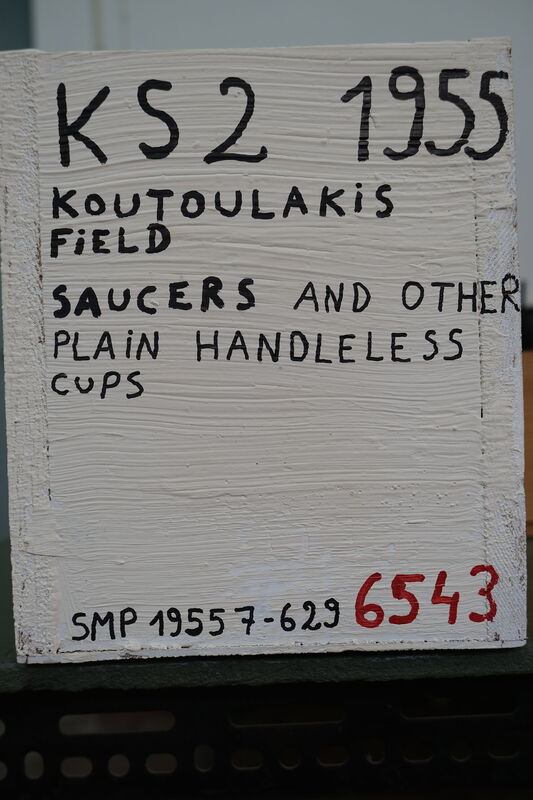 KS2 1955
KOUTOULAKiS
FiELD
SAUCERS AND OTHER
PLAiN HANDLELESS
CUPS
SMP 19557-629 6543